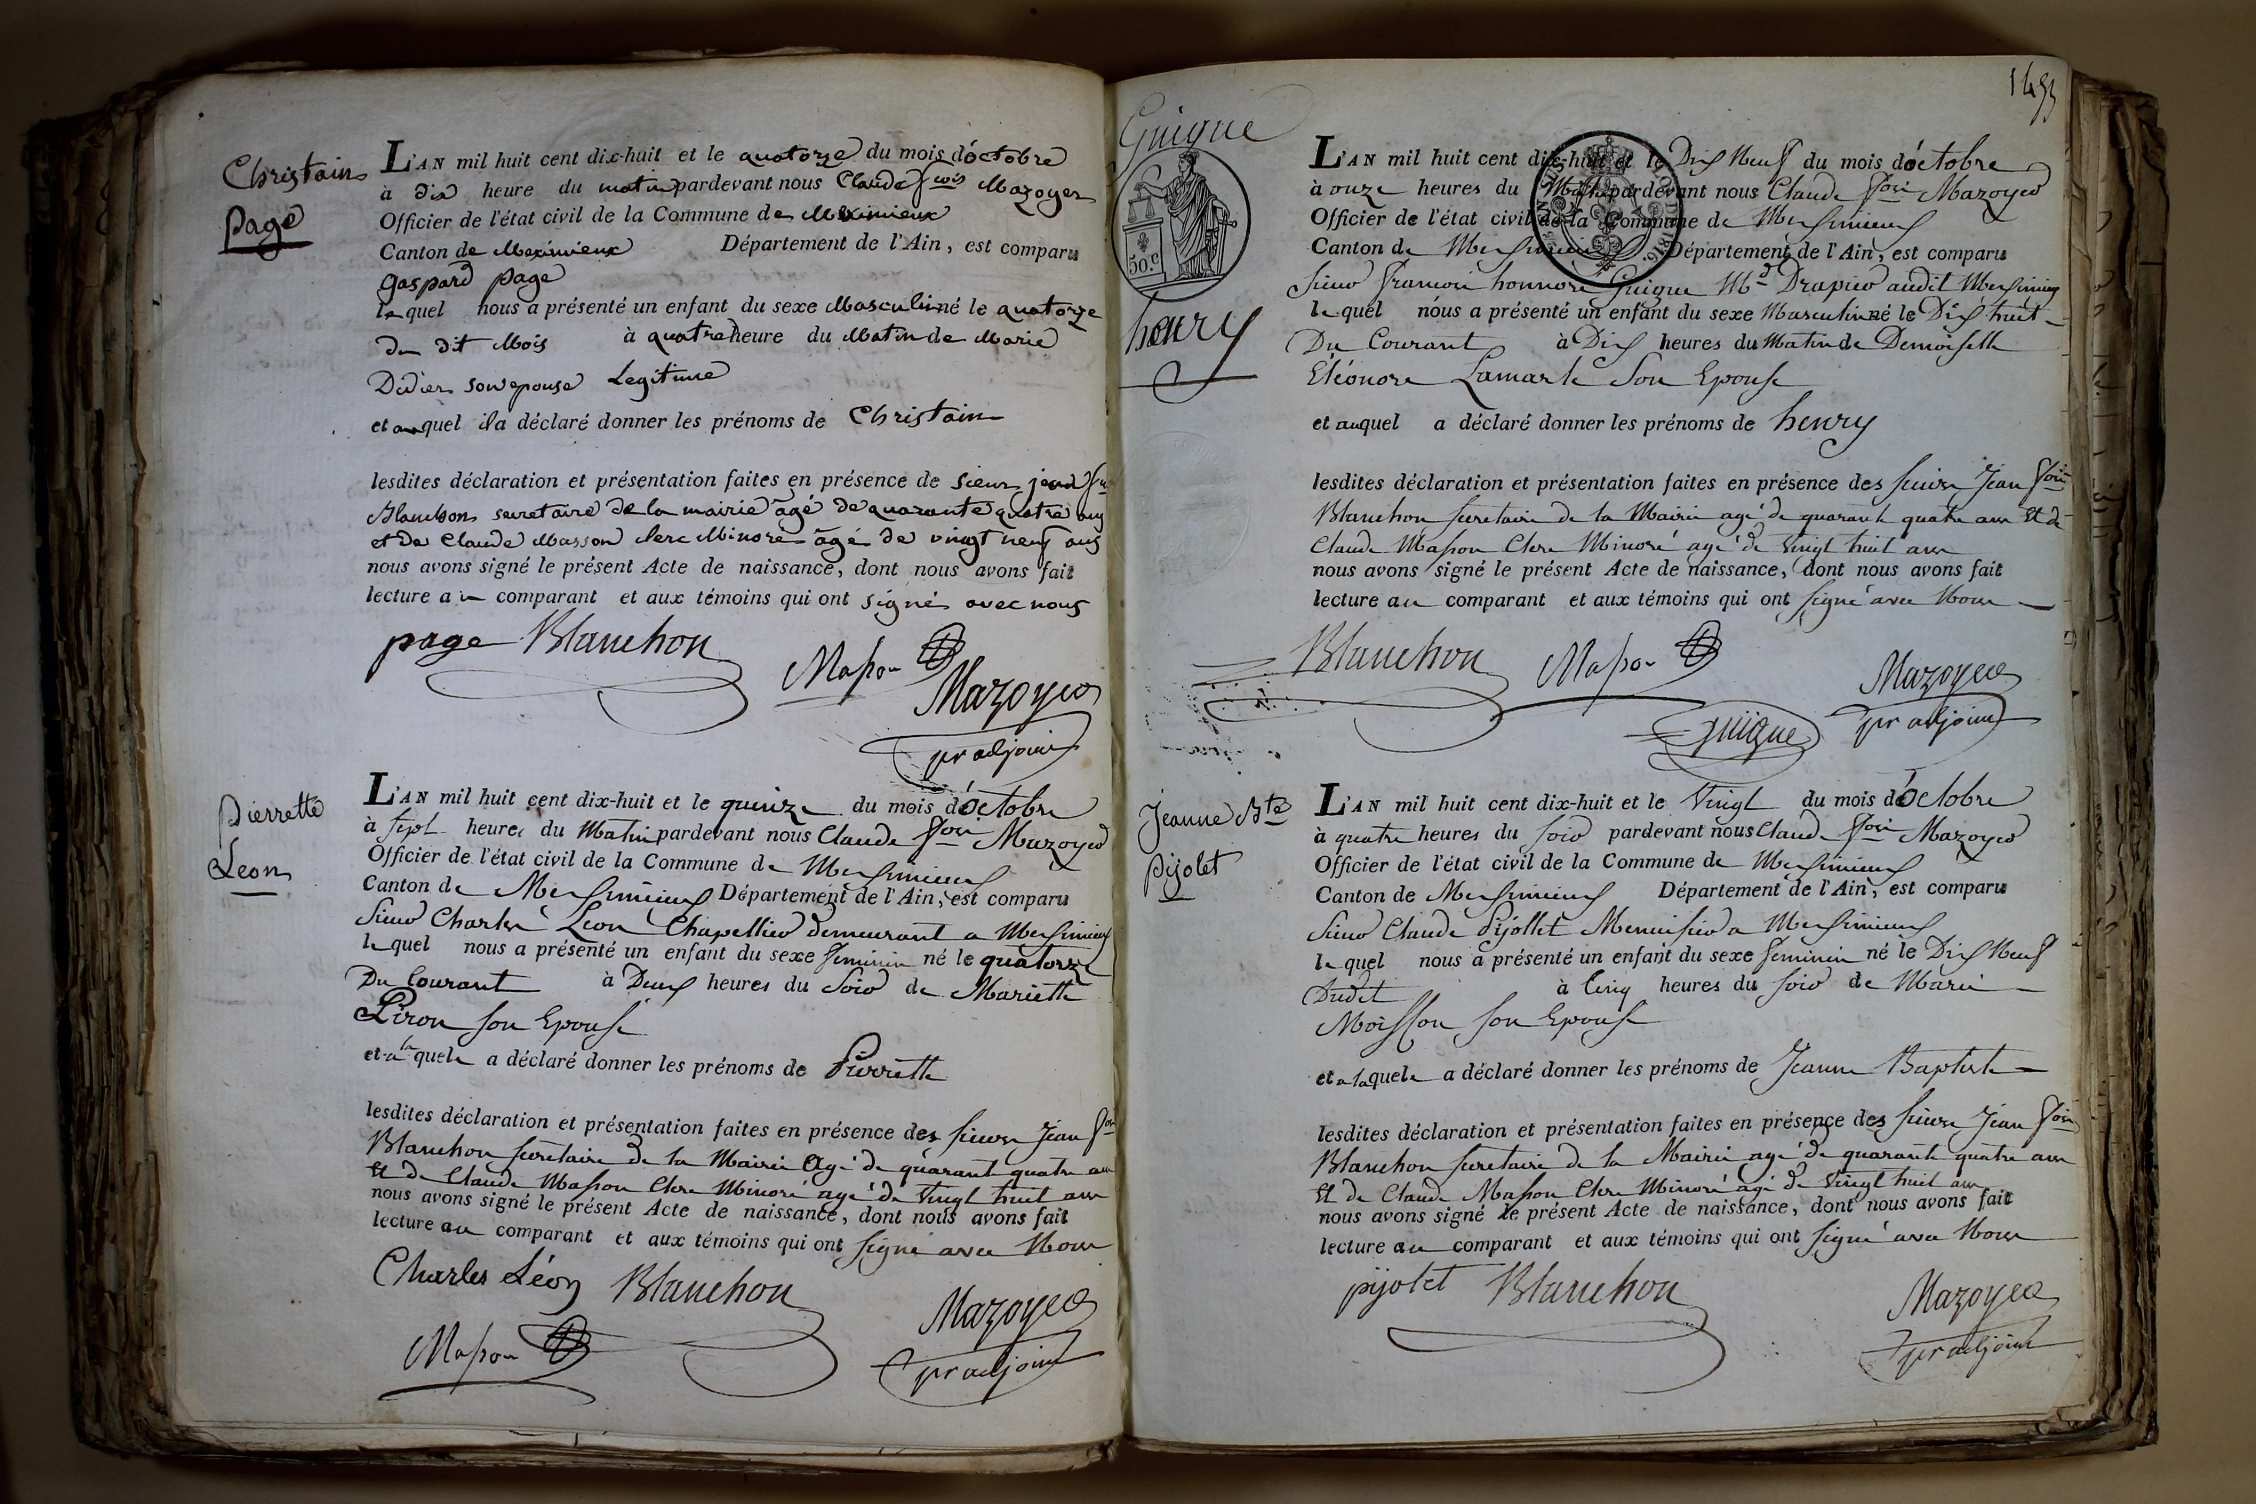 Christain
Page
L'AN mil huit cent dix-huit et le quatorze du mois d'octobre
à dix heure du matin pardevant nous Claude fcois Mazoyer
Officier de l'état civil de la Commune de Meximieux
Canton de Meximieux Département de l'Ain, est comparu
gaspard page
lequel nous a présenté un enfant du sexe Masculin né le quatorze
du dit Mois à quatre heure du Matin de Marie
Didier son epouse Legitime
et auquel il a déclaré donner les prénoms de Christain
lesdites déclaration et présentation faites en présence de sieur jean
Blanchon secretaire de la mairie âgé de quarante quatre ans
et de Claude Masson clerc Minoré âgé de vingt neuf ans
nous avons signé le présent Acte de naissance, dont nous avons fait
lecture au comparant et aux témoins qui ont signés avec nous
page Blanchon
Masson
Mazoyer
pr adjoint
Pierrette
Leon
L'AN mil huit cent dix-huit et le quinze du mois d'Octobre
à sept heures du Matin pardevant nous Claude fois Mazoyer
Officier de l'état civil de la Commune de Meximieux
Canton de Meximieux Département de l'Ain, est comparu
Sieur Charles Leon Chapellier demeurant a Meximieux
lequel nous a présenté un enfant du sexe feminin né le quatorze
Du Courant à Deux heures du Soir de Mariette
Piron son Epouse
et a laquele a déclaré donner les prénoms de Pierrette
lesdites déclaration et présentation faites en présence des sieurs Jean fois
Blanchon secretaire de la Mairie agé de quarante quatre ans
Et de Claude Masson Clerc Minoré agé de vingt huit ans
nous avons signé le présent Acte de naissance, dont nous avons fait
lecture au comparant et aux témoins qui ont signé avec Nous
Charles Léon Blanchon
Masson
Mazoyer
pr adjoint
1453
Guigue
50.c
henry
L'AN mil huit cent dix-huit et le Dix Neuf du mois d'octobre
à onze heures du Matin pardevant nous Claude fois Mazoyer
Officier de l'état civil de la Commune de Meximieux
Canton de Meximieux Département de l'Ain, est comparu
Sieur francois honnoré Guigue Md Drapier audit Meximieux
lequel nous a présenté un enfant du sexe Masculin né le Dix huit
Du Courant à Dix heures du Matin de Demoiselle
Eléonore Lamarle Son Epouse
et auquel a déclaré donner les prénoms de henry
lesdites déclaration et présentation faites en présence des sieurs Jean fois
Blanchon secretaire de la Mairie agé de quarante quatre ans Et de
Claude Masson Clerc Minoré agé de vingt huit ans
nous avons signé le présent Acte de naissance, dont nous avons fait
lecture au comparant et aux témoins qui ont signé avec Nous
Blanchon Masson
Mazoyer
guigue pr adjoint
Jeanne Bte
Pijolet
L'AN mil huit cent dix-huit et le Vingt du mois d'Octobre
à quatre heures du soir pardevant nous Claude fois Mazoyer
Officier de l'état civil de la Commune de Meximieux
Canton de Meximieux Département de l'Ain, est comparu
Sieur Claude Pijollet Menuisier a Meximieux
lequel nous a présenté un enfant du sexe feminin né le Dix Neuf
Dudit à Cinq heures du soir de Marie
Moisson son Epouse
et a laquele a déclaré donner les prénoms de Jeanne Baptiste
lesdites déclaration et présentation faites en présence des sieurs Jean fois
Blanchon secretaire de la Mairie agé de quarante quatre ans
Et de Claude Masson Clerc Minoré agé de vingt huit ans
nous avons signé le présent Acte de naissance, dont nous avons fait
lecture au comparant et aux témoins qui ont signé avec Nous
pijolet Blanchon
Mazoyer
pr adjoint